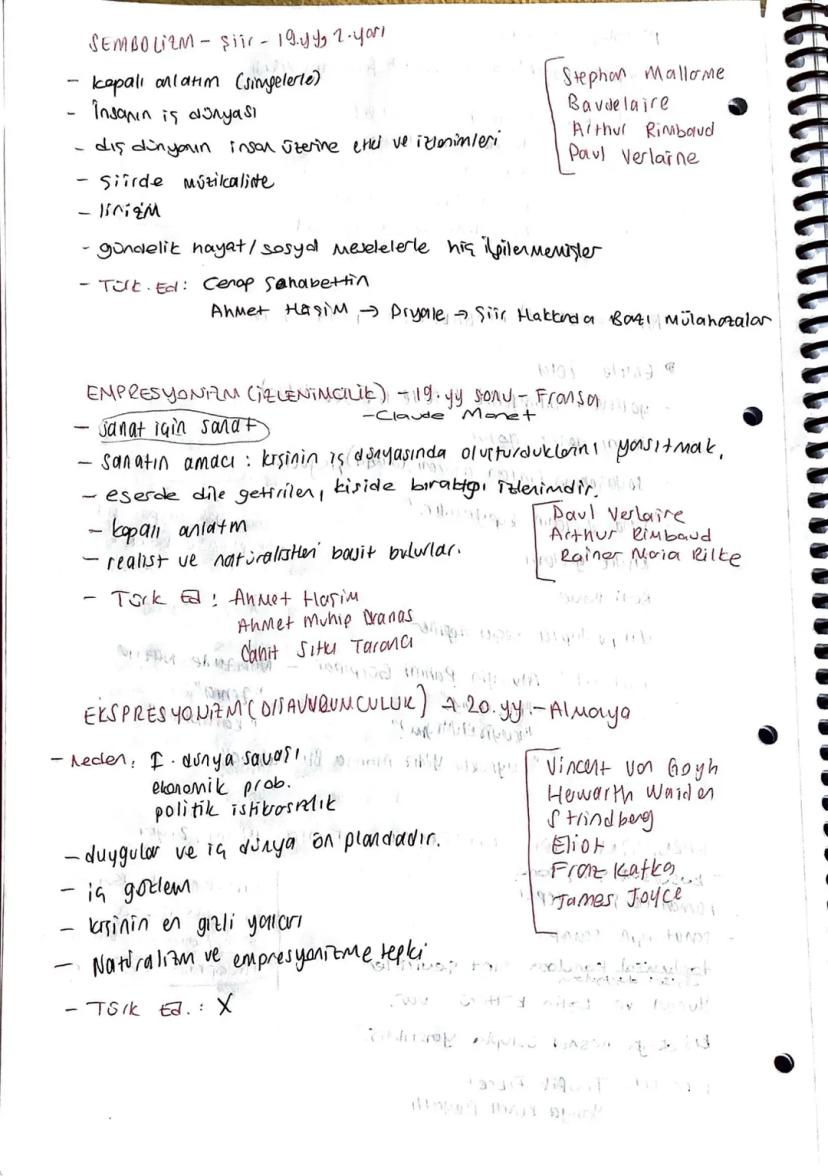 SEMBOLİZM – Şiir – 19.yy 2.yarı
– kapalı anlatım (simgelerle)
– İnsanın iç dünyası
– dış dünyanın insan üzerine etki ve izlenimleri
– şiirde müzikalite
– lirizm
– gündelik hayat/sosyal meselelerle hiç ilgilenmemişler
– Türk. Ed: Cenap Şahabettin
Ahmet Haşim → Piyale → Şiir Hakkında Bazı Mülahazalar
Stephan Mallome
Baudelaire
Arthur Rimbaud
Paul Verlaine
EMPRESYONİZM (İZLENİMCİLİK) – 19.yy sonu – Fransa
– Claude Monet
– sanat için sanat
– sanatın amacı : kişinin iç dünyasında oluşturduklarını yansıtmak,
– eserde dile getirilen, kişide bıraktığı izlenimdir.
– kapalı anlatım
– realist ve natüralistleri basit bulurlar.
– Türk Ed : Ahmet Haşim
Ahmet Muhip Dranas
Cahit Sıtkı Tarancı
Paul Verlaire
Arthur Rimbaud
Rainer Maia Rilke
EKSPRESYONİZM (DIŞAVURUMCULUK) → 20.yy. – Almanya
– Neden: I. dünya savaşı
ekonomik prob.
politik istikrarsızlık
– duygular ve iç dünya ön plandadır.
– iç gözlem
– kişinin en gizli yanları
– Natüralizm ve empresyonizme tepki
– Türk Ed. : X
Vincent Van Gogh
Hewarth Walden
Strindberg
Eliot
Franz Kafka
James Joyce